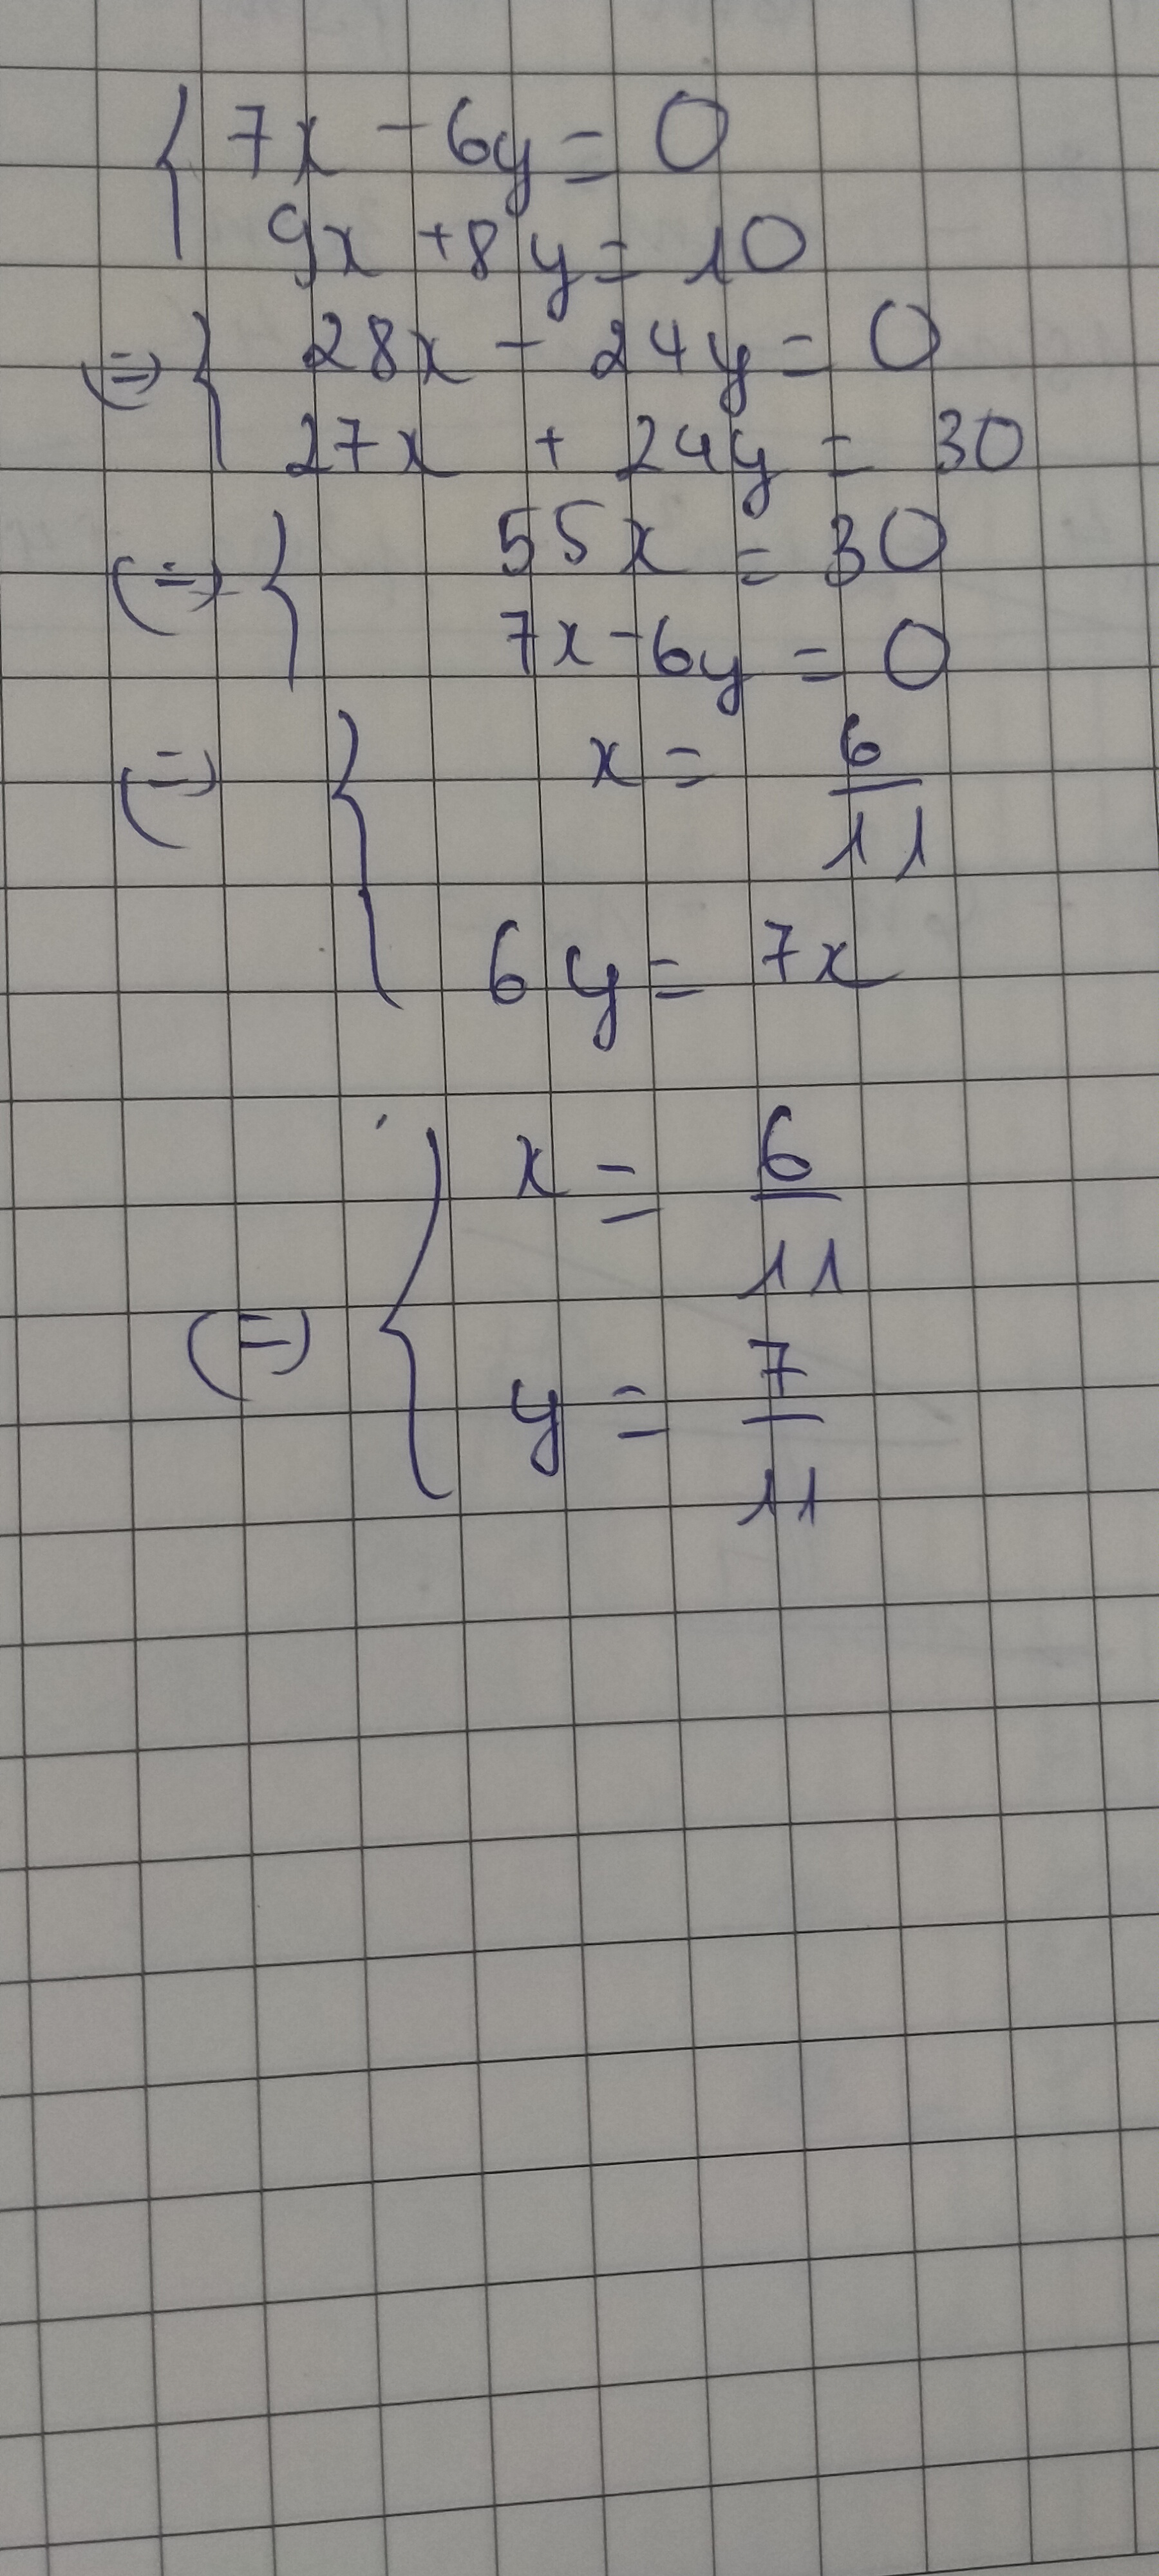 { 7x - 6y = 0
9x + 8y = 10
<=> { 28x - 24y = 0
27x + 24y = 30
<=> { 55x = 30
7x - 6y = 0
<=> { x = 6/11
6y = 7x
<=> { x = 6/11
y = 7/11